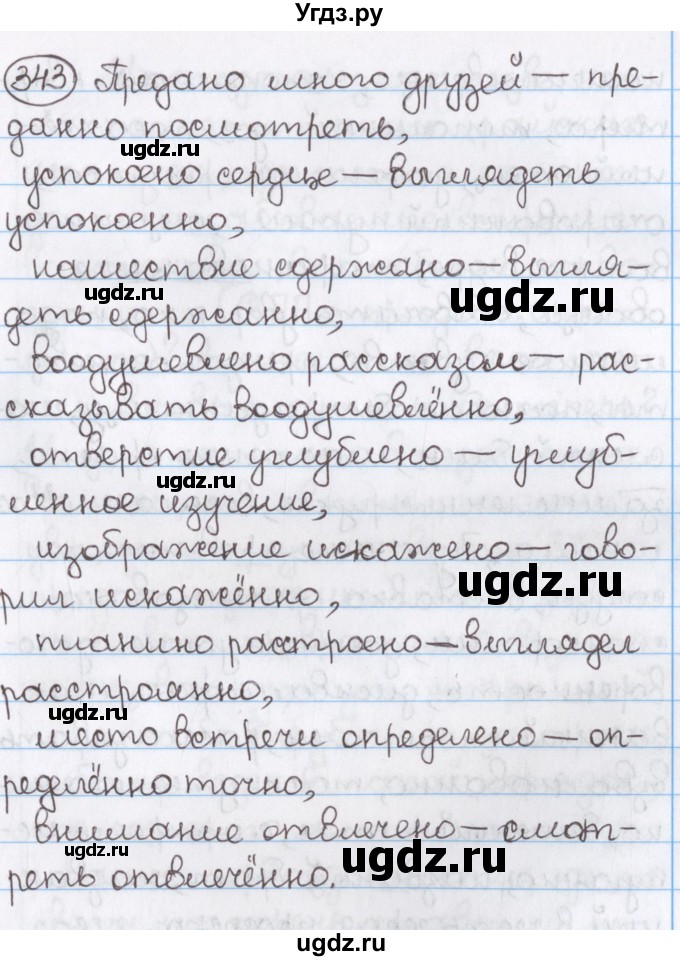 Угдз.ру
343 Предано много друзей — пре-
данно посмотреть,
ugdz.ru
успокоено сердце — выглядеть
успокоенно,
нашествие сдержано — выгля-
ugdz.ru ugdz.ru
деть сдержанно,
воодушевлено рассказом — рас-
сказывать воодушевлённо,
отверстие углублено — углуб-
ugdz.ru
лённое изучение,
изображение искажено — гово-
ugdz.ru
рил искажённо,
пианино расстроено — выглядел
расстроянно,
ugdz.ru
место встречи определено — оп-
ределённо точно,
внимание отвлечено — смот-
ugdz.ru ugdz.ru
реть отвлечённо.
ugdz.ru